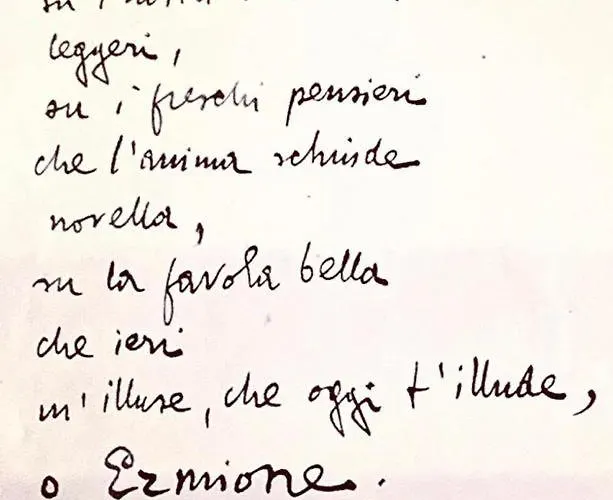 su i
leggeri,
su i freschi pensieri
che l'anima schiude
novella,
su la favola bella
che ieri
m'illuse, che oggi t'illude,
o Ermione.